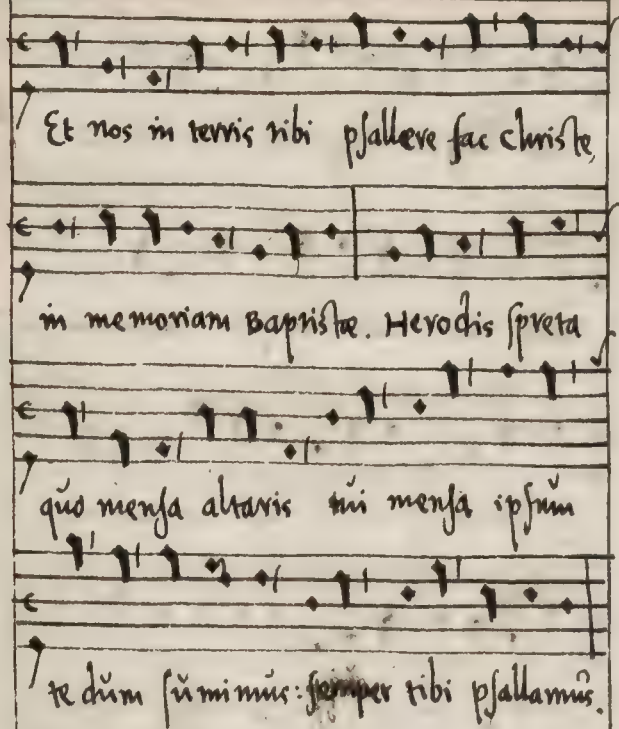 Et nos in terris tibi psallere fac Christe,
in memoriam Baptistæ. Herodis spreta
quo mensa altaris tui mensa ipsum
te dum sumimus: semper tibi psallamus.